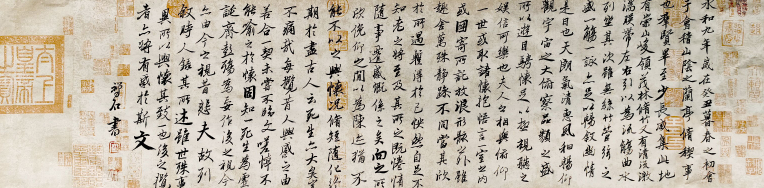 永和九年歲在癸丑暮春之初會
于會稽山陰之蘭亭脩稧事
也群賢畢至少長咸集此地
有崇山峻領茂林脩竹又有清流激
湍暎帶左右引以為流觴曲水
列坐其次雖無絲竹管絃之
盛一觴一詠亦足以暢敘幽情
是日也天朗氣清惠風和暢仰
觀宇宙之大俯察品類之盛
所以遊目騁懷足以極視聽之
娛信可樂也夫人之相與俯仰
一世或取諸懷抱悟言一室之內
或因寄所託放浪形骸之外雖
趣舍萬殊靜躁不同當其欣
於所遇暫得於己快然自足不
知老之將至及其所之既惓情
隨事遷感慨係之矣向之所
欣俛仰之間以為陳迹猶不
能不以之興懷況脩短隨化終
期於盡古人云死生亦大矣豈
不痛哉每攬昔人興感之由
若合一契未嘗不臨文嗟悼不
能喻之於懷固知一死生為虛
誕齊彭殤為妄作後之視今
亦由今之視昔悲夫故列
敘時人錄其所述雖世殊事
異所以興懷其致一也後之攬
者亦將有感於斯文
石書